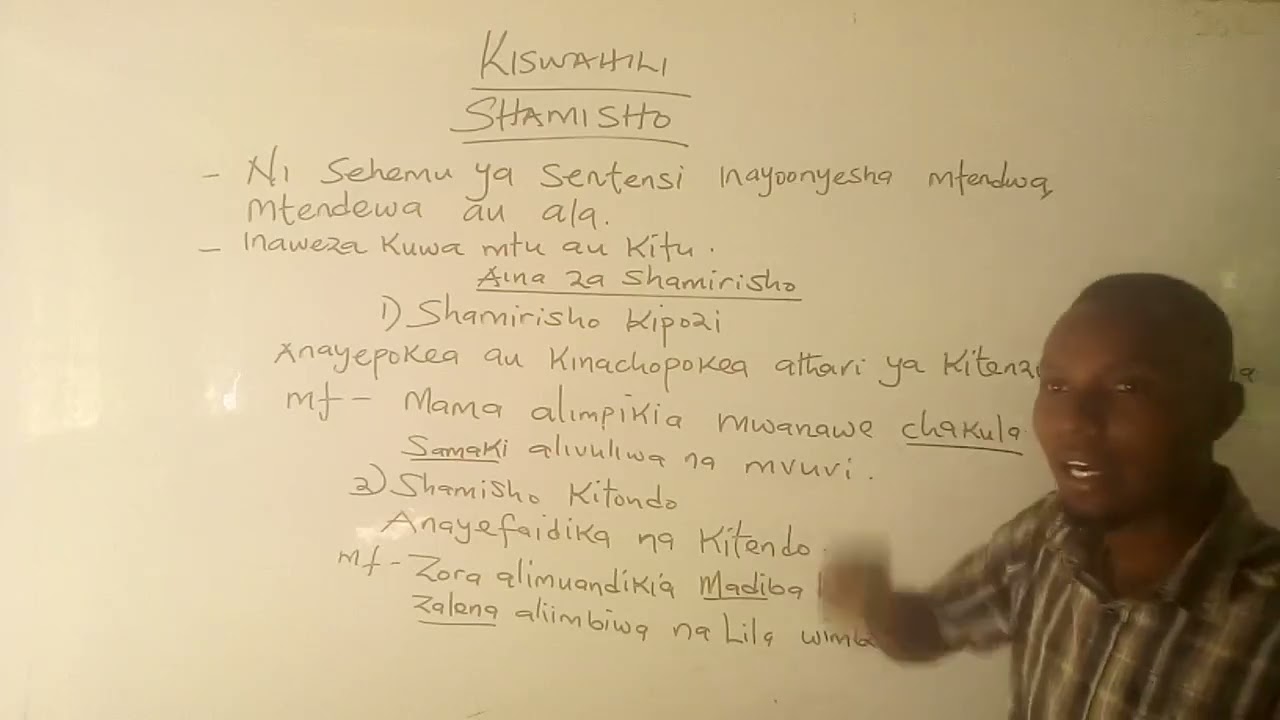 KISWAHILI
SHAMISHO
- Ni Sehemu ya Sentensi inayoonyesha mtendwa,
mtendewa au ala.
- Inaweza Kuwa mtu au Kitu.
Aina za Shamirisho
1) Shamirisho Kipozi
Anayepokea au Kinachopokea athari ya
mf - Mama alimpikia mwanawe chakula
Samaki alivuliwa na mvuvi.
2) Shamisho Kitondo
Anayefaidika na Kitendo.
mf - Zora alimuandikia Madiba
Zalena aliimbiwa na Lila